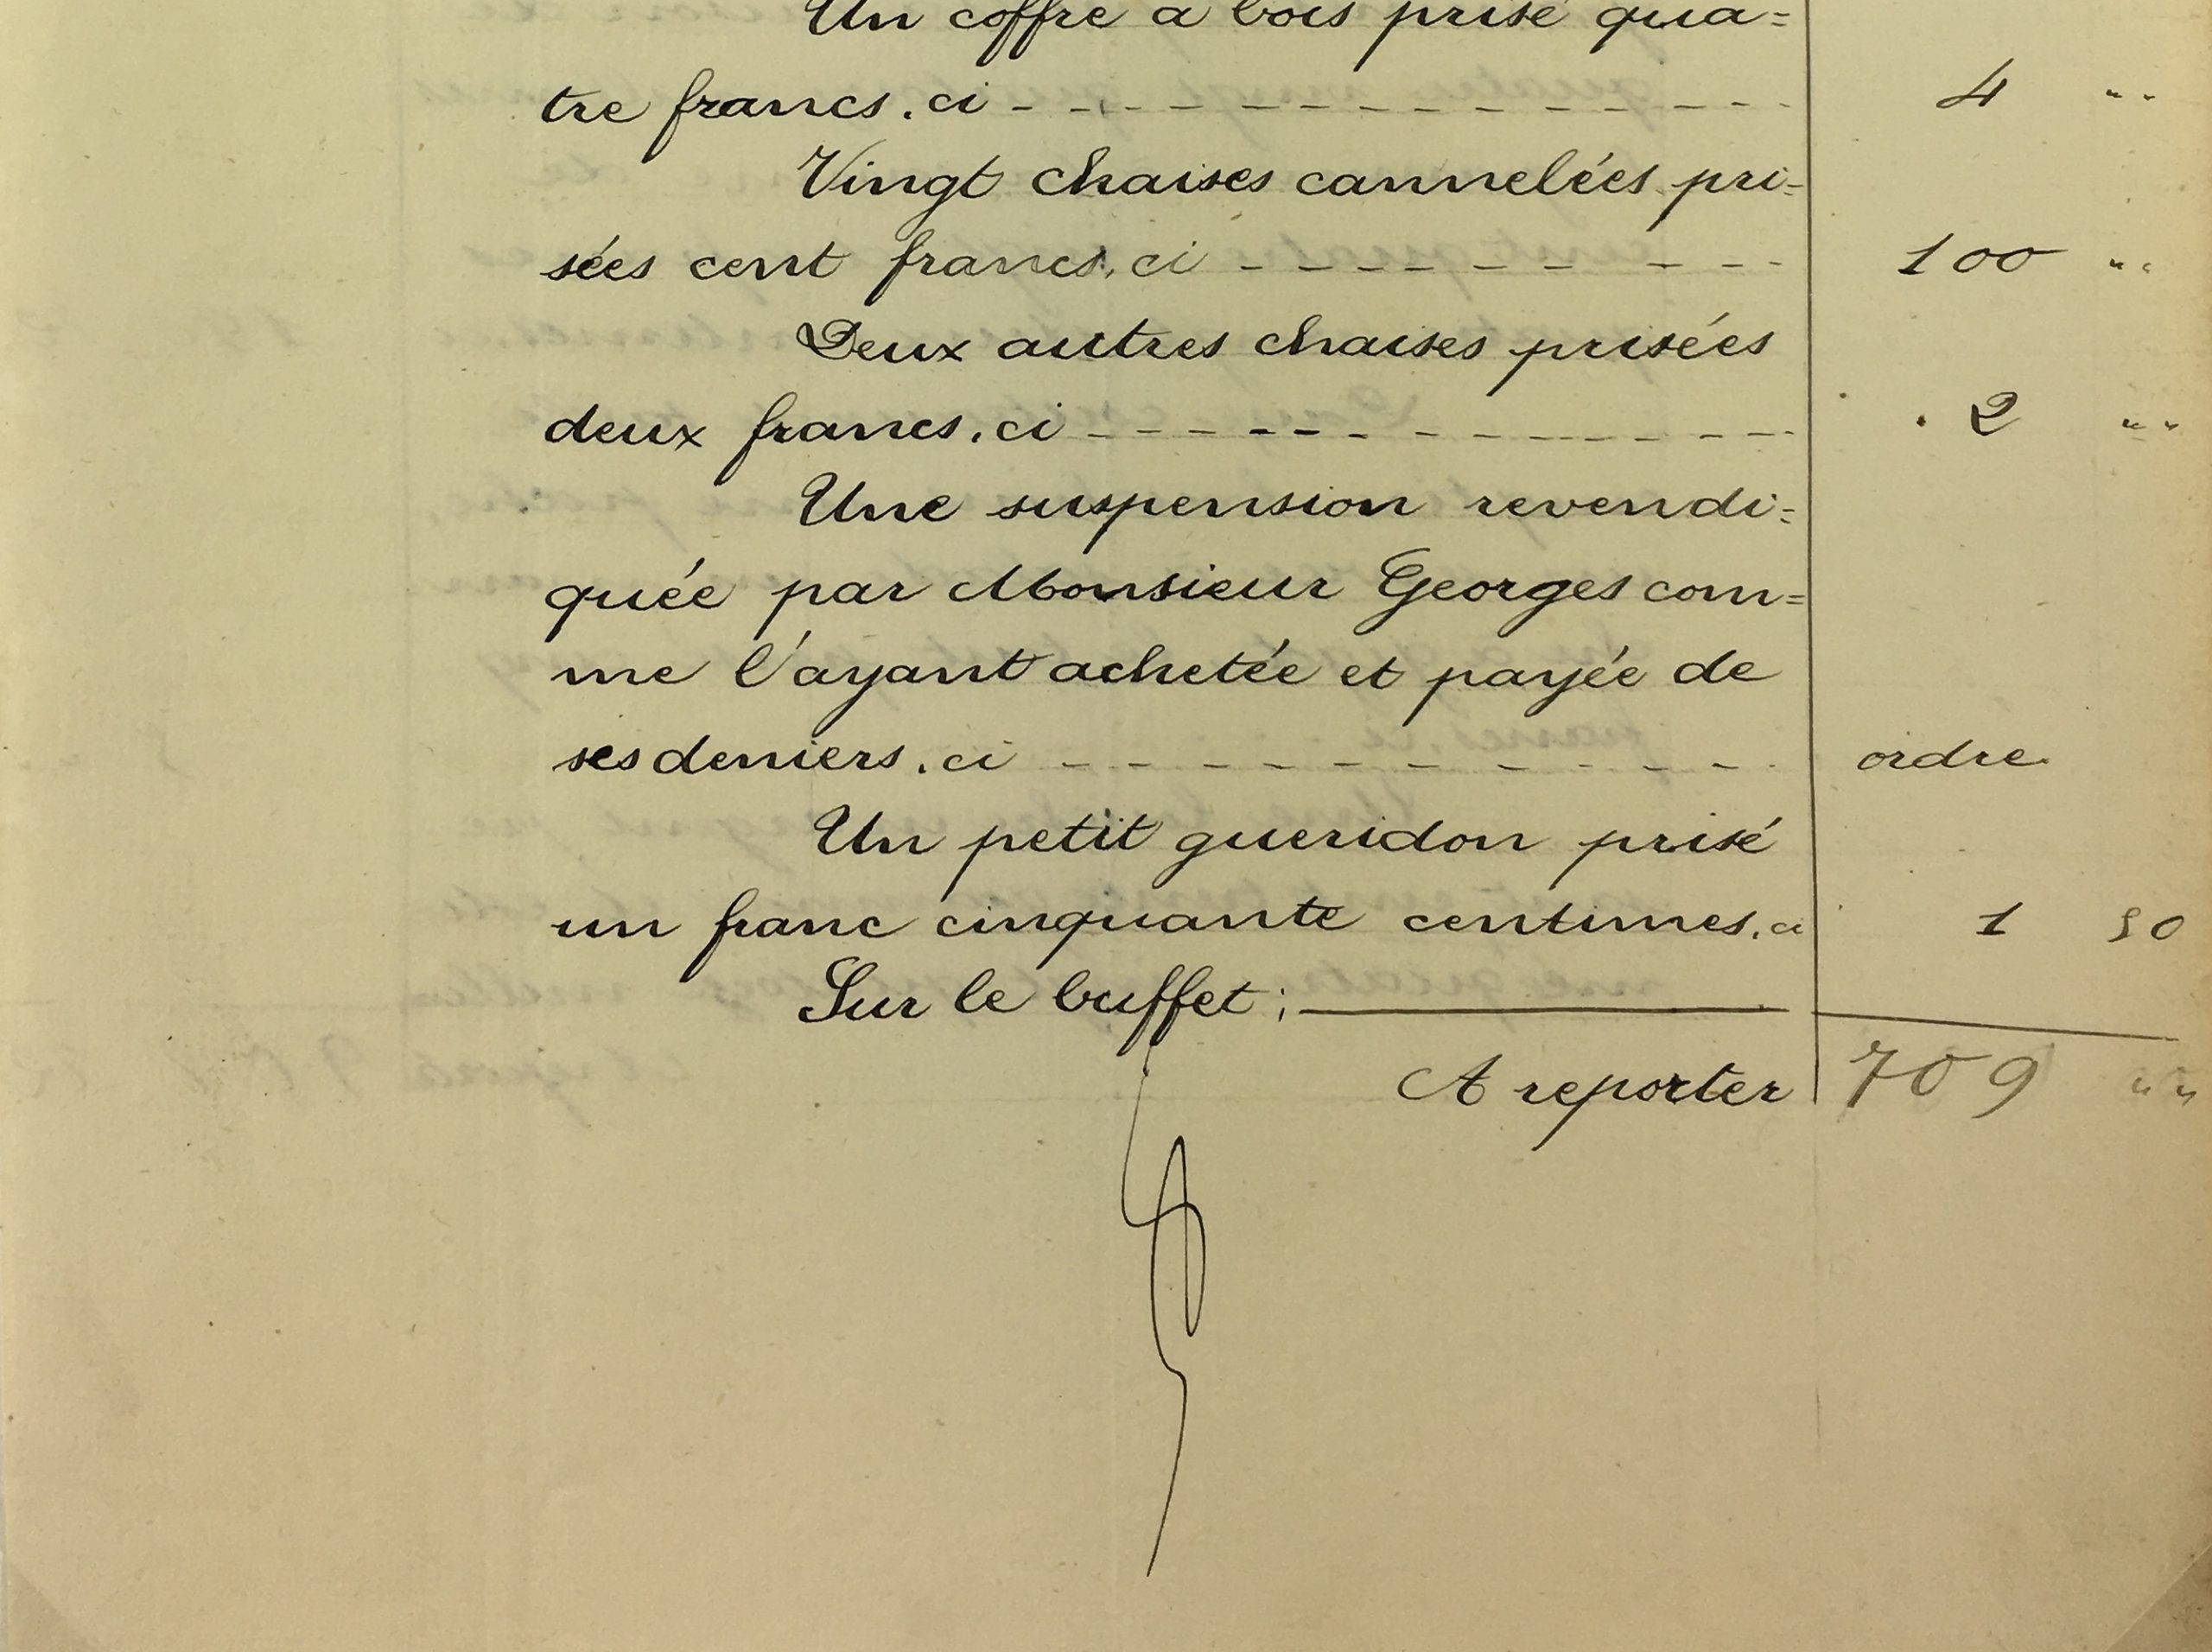 Un coffre a bois prisé qua=
tre francs. ci - - - - - - - - - - - - - 4 " "
Vingt chaises cannelées pri=
sées cent francs. ci - - - - - - - - - 100 " "
Deux autres chaises prisées
deux francs. ci - - - - - - - - - - - - 2 " "
Une suspension revendi=
quée par Monsieur Georges com=
me l'ayant achetée et payée de
ses deniers. ci - - - - - - - - - - - ordre.
Un petit gueridon prisé
un franc cinquante centimes. ci 1 50
Sur le buffet ;
A reporter 709 " "